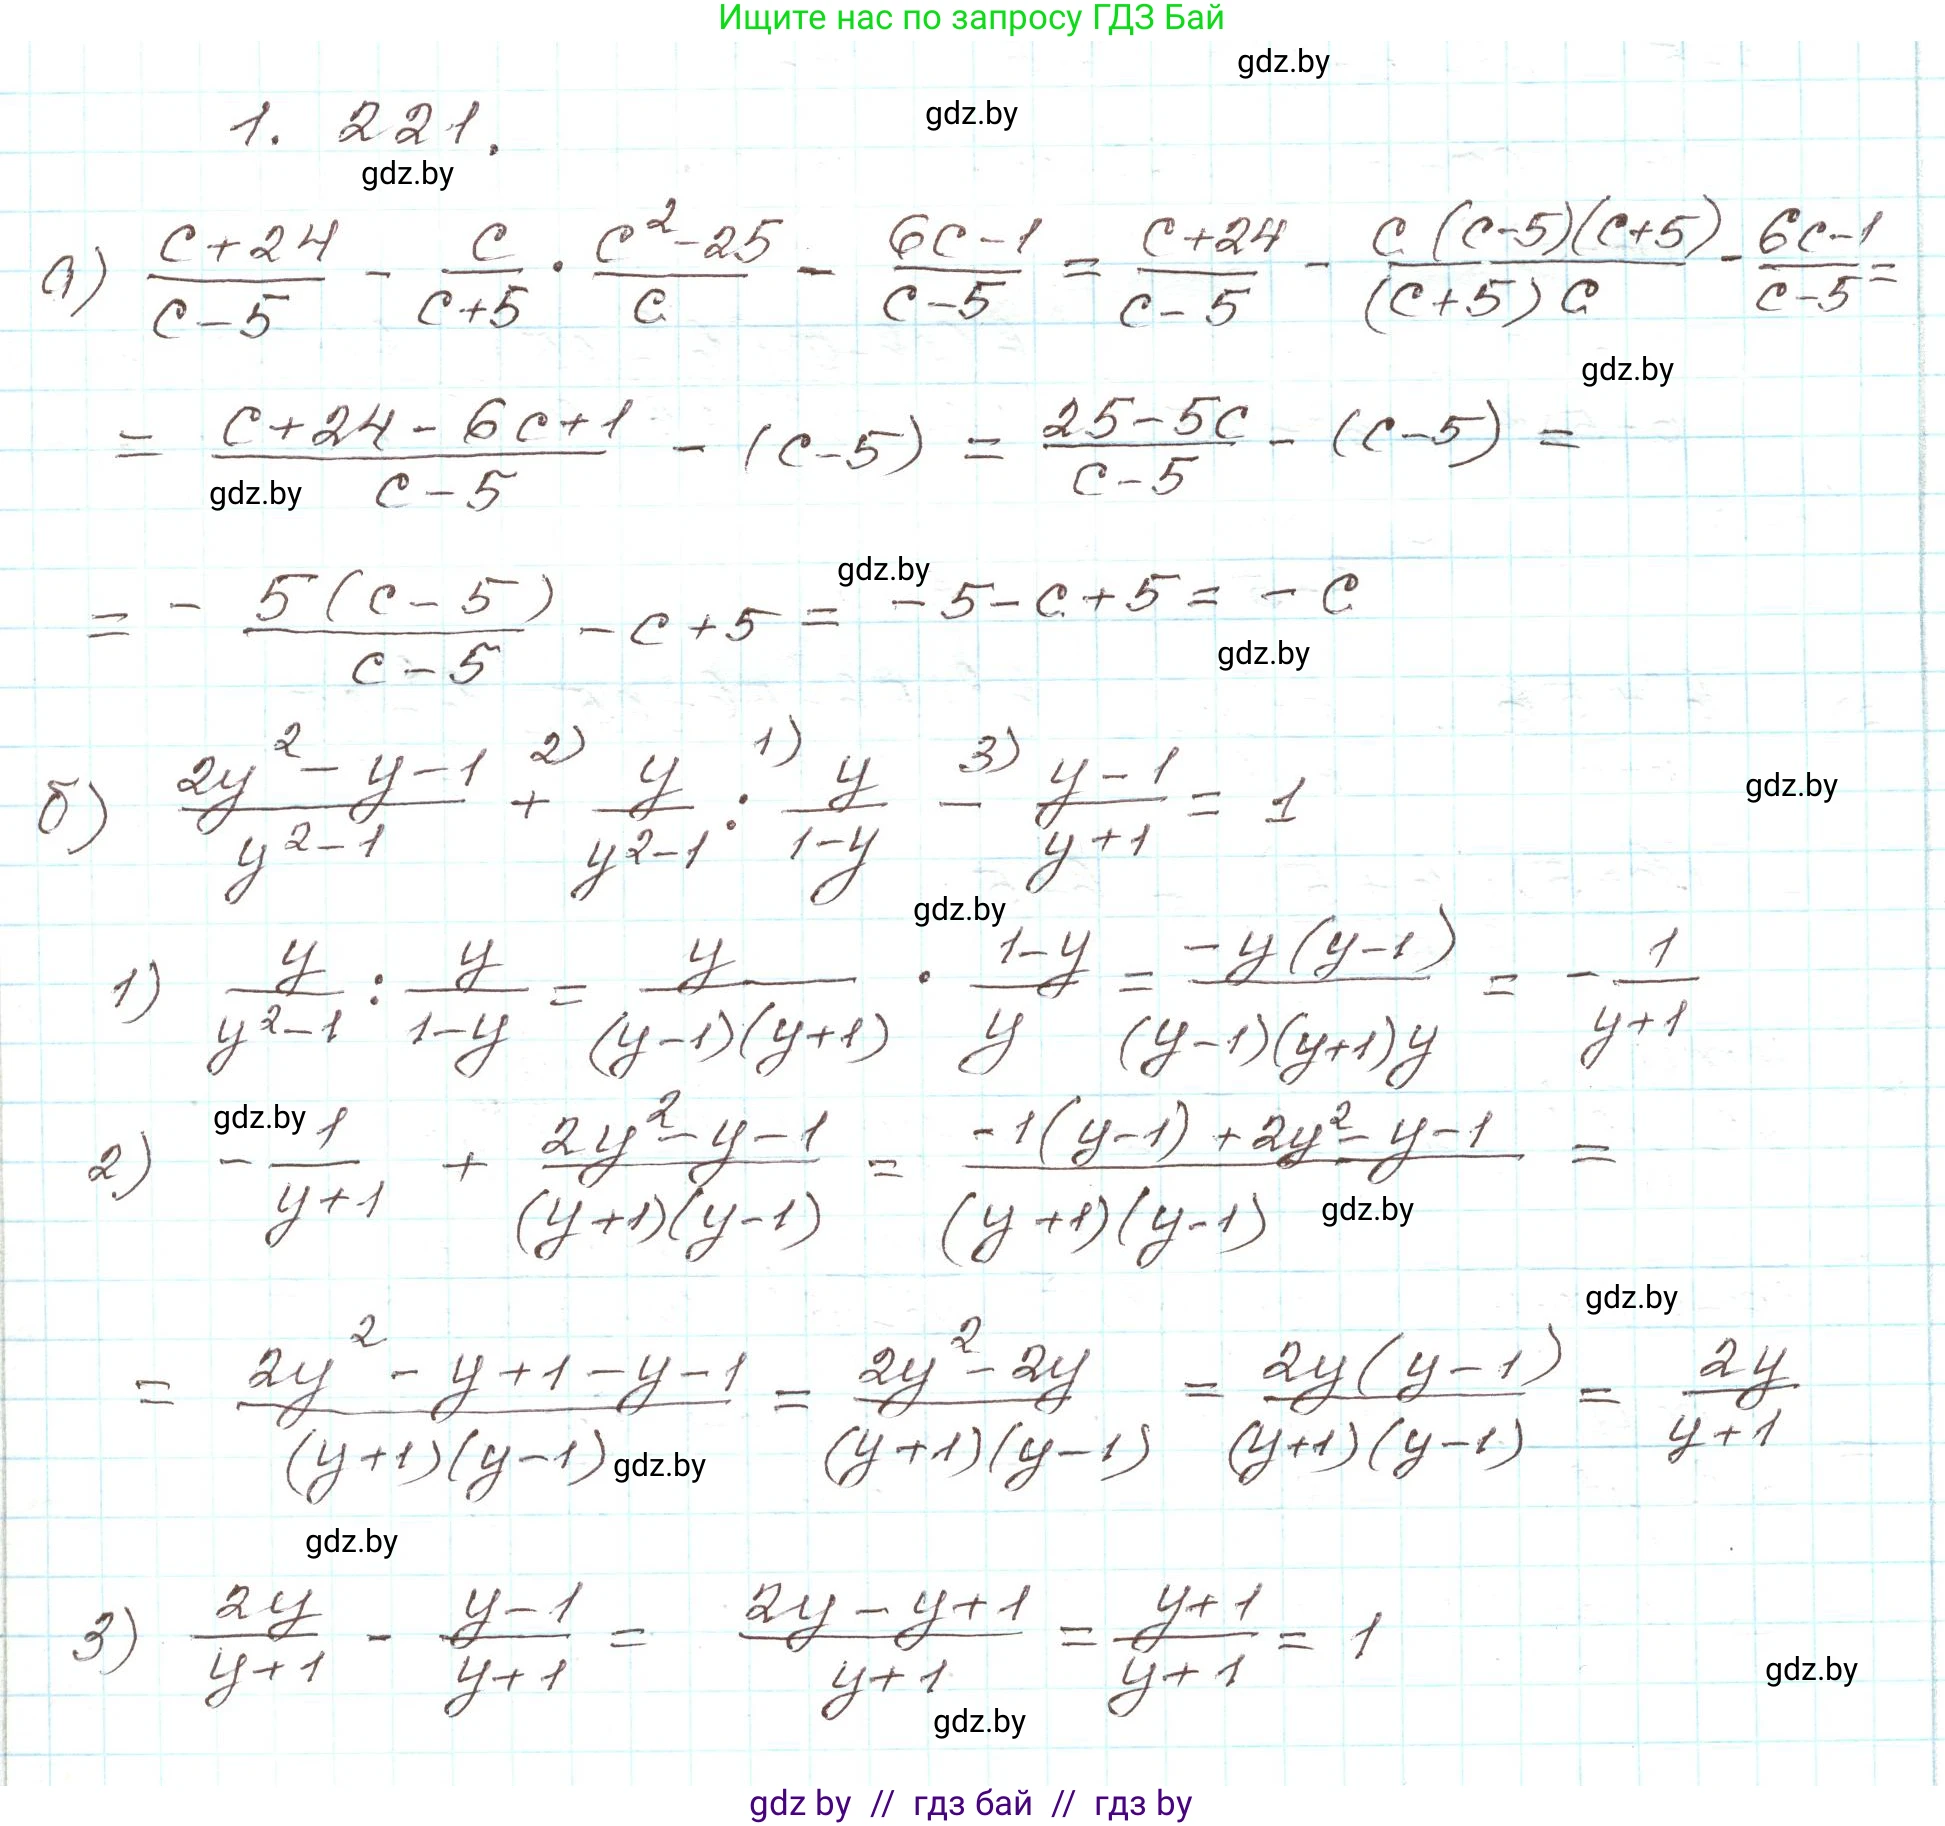 Ищите нас по запросу ГДЗ Бай
gdz.by
gdz.by
1. 221.
gdz.by
а) (c+24)/(c-5) - c/(c+5) · (c²-25)/c - (6c-1)/(c-5) = (c+24)/(c-5) - (c(c-5)(c+5))/((c+5)c) - (6c-1)/(c-5) =
gdz.by
= (c+24-6c+1)/(c-5) - (c-5) = (25-5c)/(c-5) - (c-5) =
gdz.by
gdz.by
= - (5(c-5))/(c-5) - c+5 = -5-c+5 = -c
gdz.by
б) (2y²-y-1)/(y²-1) +²⁾ y/(y²-1) :¹⁾ y/(1-y) -³⁾ (y-1)/(y+1) = 1
gdz.by
gdz.by
1) y/(y²-1) : y/(1-y) = y/((y-1)(y+1)) · (1-y)/y = (-y(y-1))/((y-1)(y+1)y) = - 1/(y+1)
gdz.by
2) - 1/(y+1) + (2y²-y-1)/((y+1)(y-1)) = (-1(y-1)+2y²-y-1)/((y+1)(y-1)) =
gdz.by
gdz.by
= (2y²-y+1-y-1)/((y+1)(y-1)) = (2y²-2y)/((y+1)(y-1)) = (2y(y-1))/((y+1)(y-1)) = 2y/(y+1)
gdz.by
gdz.by
3) 2y/(y+1) - (y-1)/(y+1) = (2y-y+1)/(y+1) = (y+1)/(y+1) = 1
gdz.by
gdz.by
gdz by // гдз бай // гдз by